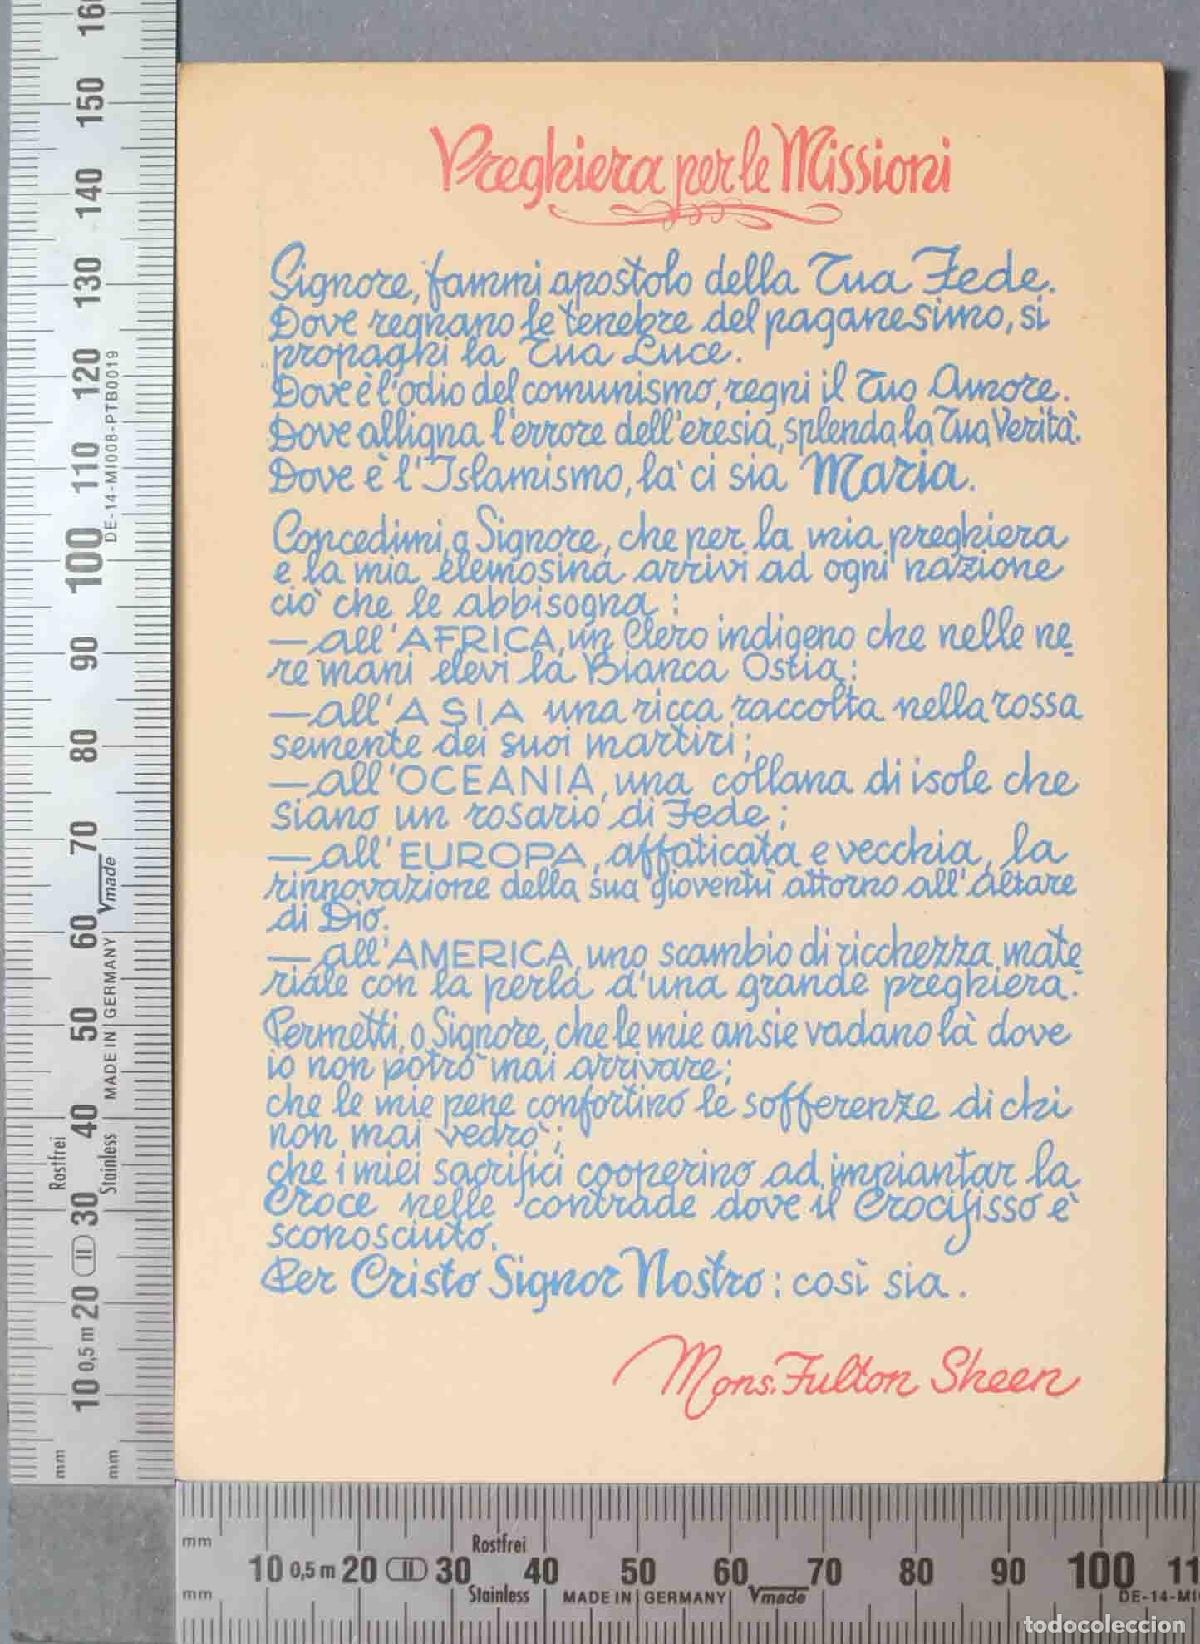 Preghiera per le Missioni
Signore, fammi apostolo della Tua Fede.
Dove regnano le tenebre del paganesimo, si
propaghi la Tua Luce.
Dove è l'odio del comunismo, regni il Tuo Amore.
Dove alligna l'errore dell'eresia, splenda la Tua Verità.
Dove è l'Islamismo, là ci sia Maria.
Concedimi, o Signore, che per la mia preghiera
e la mia elemosina arrivi ad ogni nazione
ciò che le abbisogna:
— all'AFRICA, un Clero indigeno che nelle ne
re mani elevi la Bianca Ostia;
— all'ASIA una ricca raccolta nella rossa
semente dei suoi martiri;
— all'OCEANIA, una collana di isole che
siano un rosario di Fede;
— all'EUROPA, affaticata e vecchia, la
rinnovazione della sua gioventù attorno all'Altare
di Dio.
— all'AMERICA, uno scambio di ricchezza mate
riale con la perla d'una grande preghiera.
Permetti, o Signore, che le mie ansie vadano là dove
io non potrò mai arrivare;
che le mie pene confortino le sofferenze di chi
non mai vedrò;
che i miei sacrifici cooperino ad impiantar la
Croce nelle contrade dove il Crocifisso è
sconosciuto.
Per Cristo Signor Nostro: così sia.
Mons. Fulton Sheen
160
150
140
130
120
110
100
90
80
70
60
50
40
30
20
10
0,5 m
II
mm
mm
DE-14-MI008-PTB0019
MADE IN GERMANY Vmade
Rostfrei
Stainless
mm
mm
10 0,5 m 20 II 30 40 50 60 70 80 90 100 11
Rostfrei
Stainless MADE IN GERMANY Vmade
DE-14-MI
todocoleccion